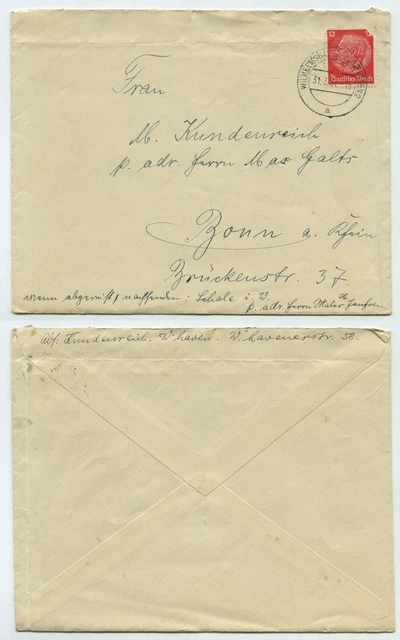 12 12
Deutsches Reich
31.3.
a
Frau
M. Kundenreich
p. adr. Herrn Max Galts
Bonn a. Rhein
Brückenstr. 37
wenn abgereist, nachsenden: Schale i. W.
p. adr. Herrn Maler H. Janssen
Abs. Kundenreich. W'haven. W'havenerstr. 58.